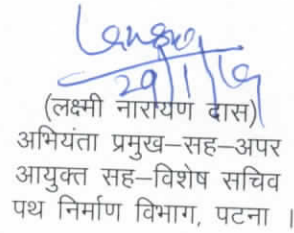 29/1/19
(लक्ष्मी नारायण दास)
अभियंता प्रमुख–सह–अपर
आयुक्त सह–विशेष सचिव
पथ निर्माण विभाग, पटना ।